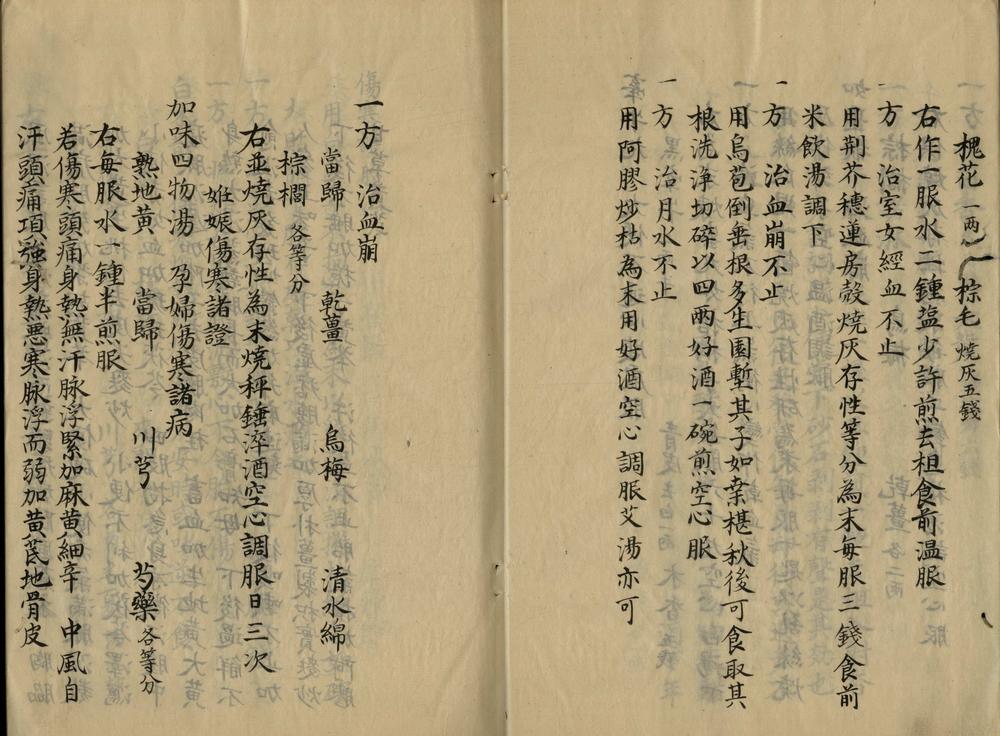 槐花一两 棕毛燒灰五錢
右作一服水二鍾盐少許煎去柤食前温服
一方 治室女經血不止
用荆芥穗蓮房殻燒灰存性等分為末每服三錢食前
米飲湯調下
一方 治血崩不止
用烏苞倒垂根多生園塹其子如桒椹秋後可食取其
根洗浄切碎以四兩好酒一碗煎空心服
一方 治月水不止
用阿膠炒枯為末用好酒空心調服艾湯亦可
一方 治血崩
當歸 乾薑 烏梅 清水綿
棕櫚各等分
右並燒灰存性為末燒秤錘淬酒空心調服日三次
姙娠傷寒諸證
加味四物湯 孕婦傷寒諸病
熟地黄 當歸 川芎 芍藥各等分
右每服水一鍾半煎服
若傷寒頭痛身熱無汗脉浮緊加麻黄細辛 中風自
汗頭痛項強身熱悪寒脉浮而弱加黄芪地骨皮